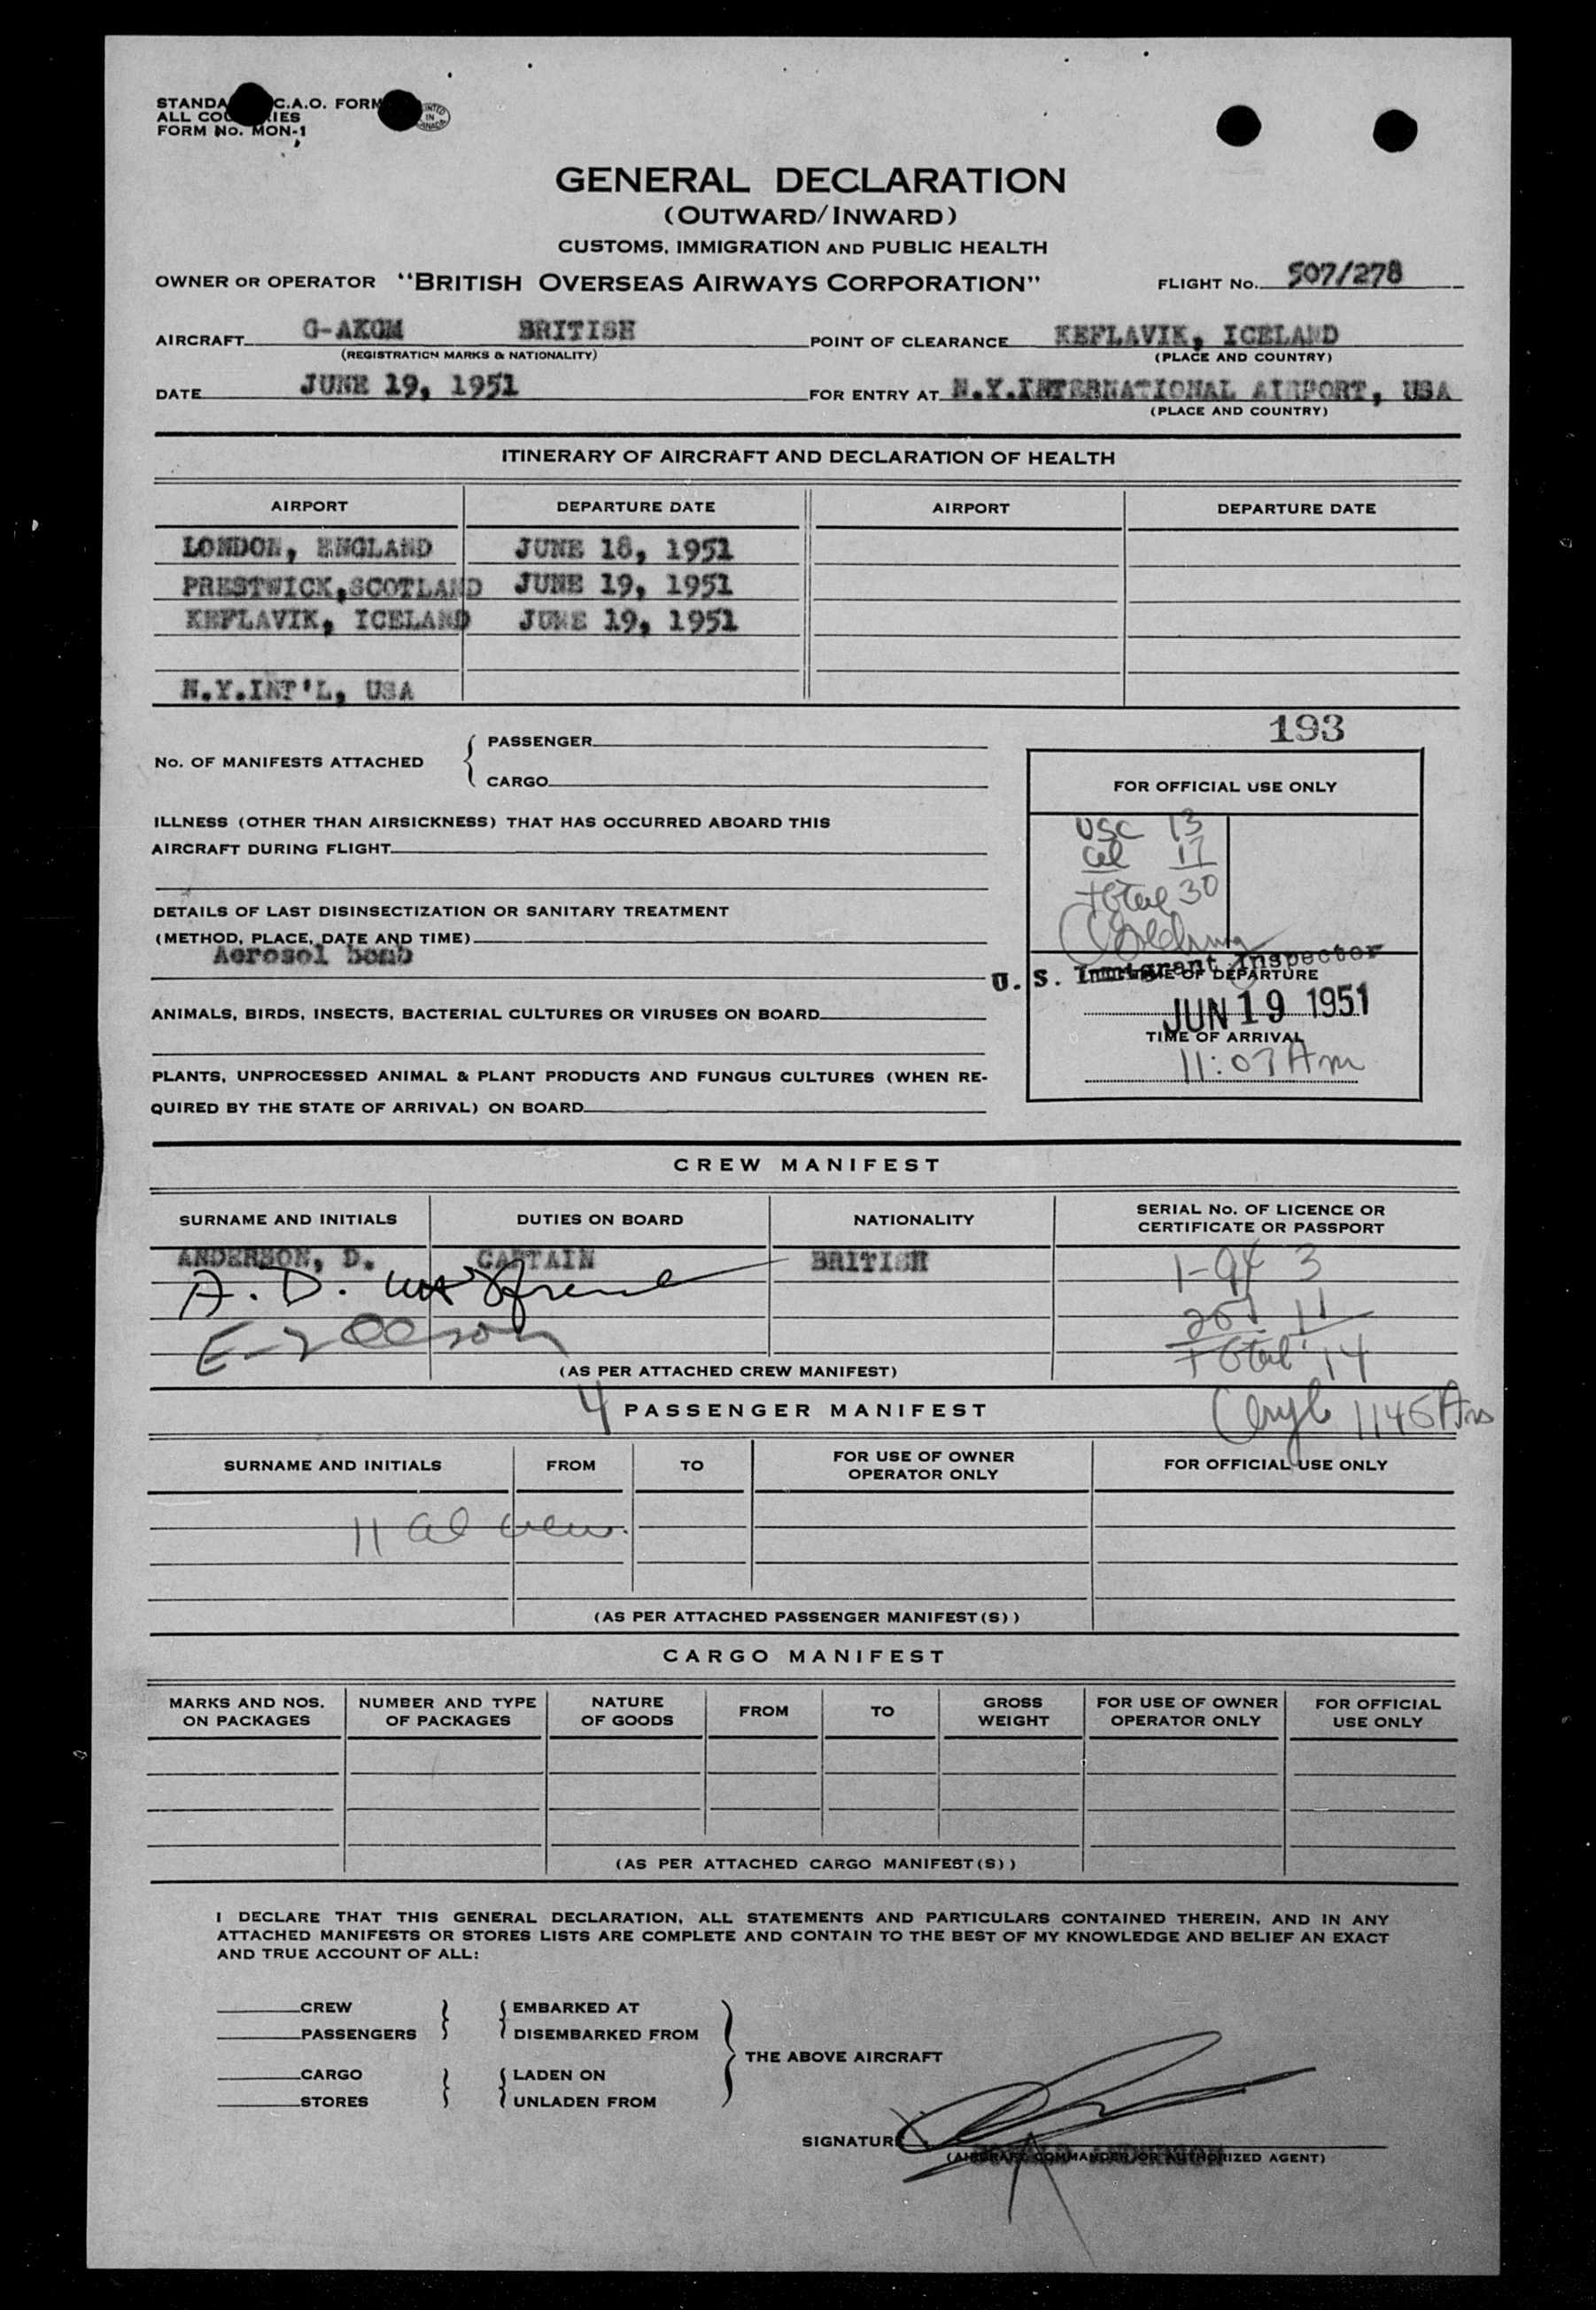 STANDA C.A.O. FORM
ALL COU RIES
FORM No. MON-1
PRINTED IN CANADA
GENERAL DECLARATION
(OUTWARD/INWARD)
CUSTOMS, IMMIGRATION AND PUBLIC HEALTH
OWNER OR OPERATOR "BRITISH OVERSEAS AIRWAYS CORPORATION" FLIGHT No. 507/278
AIRCRAFT G-AKGM BRITISH POINT OF CLEARANCE KEFLAVIK, ICELAND
(REGISTRATION MARKS & NATIONALITY) (PLACE AND COUNTRY)
DATE JUNE 19, 1951 FOR ENTRY AT N.Y.INTERNATIONAL AIRPORT, USA
(PLACE AND COUNTRY)
ITINERARY OF AIRCRAFT AND DECLARATION OF HEALTH
AIRPORT DEPARTURE DATE AIRPORT DEPARTURE DATE
LONDON, ENGLAND JUNE 18, 1951
PRESTWICK,SCOTLAND JUNE 19, 1951
KEFLAVIK, ICELAND JUNE 19, 1951
N.Y.INT'L, USA
193
No. OF MANIFESTS ATTACHED
PASSENGER
CARGO
ILLNESS (OTHER THAN AIRSICKNESS) THAT HAS OCCURRED ABOARD THIS
AIRCRAFT DURING FLIGHT
DETAILS OF LAST DISINSECTIZATION OR SANITARY TREATMENT
(METHOD, PLACE, DATE AND TIME)
Aerosol bomb
ANIMALS, BIRDS, INSECTS, BACTERIAL CULTURES OR VIRUSES ON BOARD
PLANTS, UNPROCESSED ANIMAL & PLANT PRODUCTS AND FUNGUS CULTURES (WHEN RE-
QUIRED BY THE STATE OF ARRIVAL) ON BOARD
FOR OFFICIAL USE ONLY
USC 13
Cel 17
total 30
U. S. Immigrant Inspector
TIME OF DEPARTURE
JUN 19 1951
TIME OF ARRIVAL
11:07 Am
CREW MANIFEST
SURNAME AND INITIALS DUTIES ON BOARD NATIONALITY SERIAL No. OF LICENCE OR
CERTIFICATE OR PASSPORT
ANDERSON, D. CAPTAIN BRITISH
A. D.
1-94 3
257 11
total 14
(AS PER ATTACHED CREW MANIFEST)
4 PASSENGER MANIFEST
1145 Am
SURNAME AND INITIALS FROM TO FOR USE OF OWNER
OPERATOR ONLY FOR OFFICIAL USE ONLY
11 Cel crew.
(AS PER ATTACHED PASSENGER MANIFEST(S))
CARGO MANIFEST
MARKS AND NOS.
ON PACKAGES NUMBER AND TYPE
OF PACKAGES NATURE
OF GOODS FROM TO GROSS
WEIGHT FOR USE OF OWNER
OPERATOR ONLY FOR OFFICIAL
USE ONLY
(AS PER ATTACHED CARGO MANIFEST(S))
I DECLARE THAT THIS GENERAL DECLARATION, ALL STATEMENTS AND PARTICULARS CONTAINED THEREIN, AND IN ANY
ATTACHED MANIFESTS OR STORES LISTS ARE COMPLETE AND CONTAIN TO THE BEST OF MY KNOWLEDGE AND BELIEF AN EXACT
AND TRUE ACCOUNT OF ALL:
CREW EMBARKED AT
PASSENGERS DISEMBARKED FROM
THE ABOVE AIRCRAFT
CARGO LADEN ON
STORES UNLADEN FROM
SIGNATURE
DONALD ANDERSON
(AIRCRAFT COMMANDER OR AUTHORIZED AGENT)